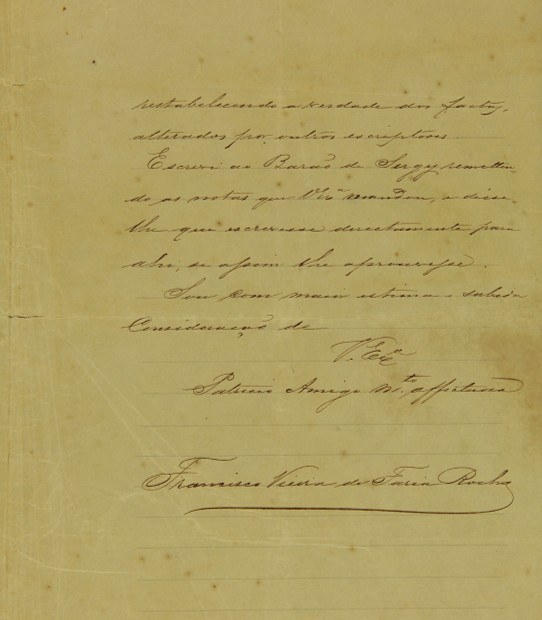 restabelecendo a verdade dos factos,
alterados por outros escriptores.
Escrevi ao Barão de Sergy remetten
do as notas que V. Exª mandou, e disse
lhe que escrevesse directamente para
ahi, se assim lhe aprouvesse.
Sou com mais estima e subida
Consideração de
V. Exª
Patricio Amigo Mto. affectuoso
Francisco Vieira de Faria Rocha